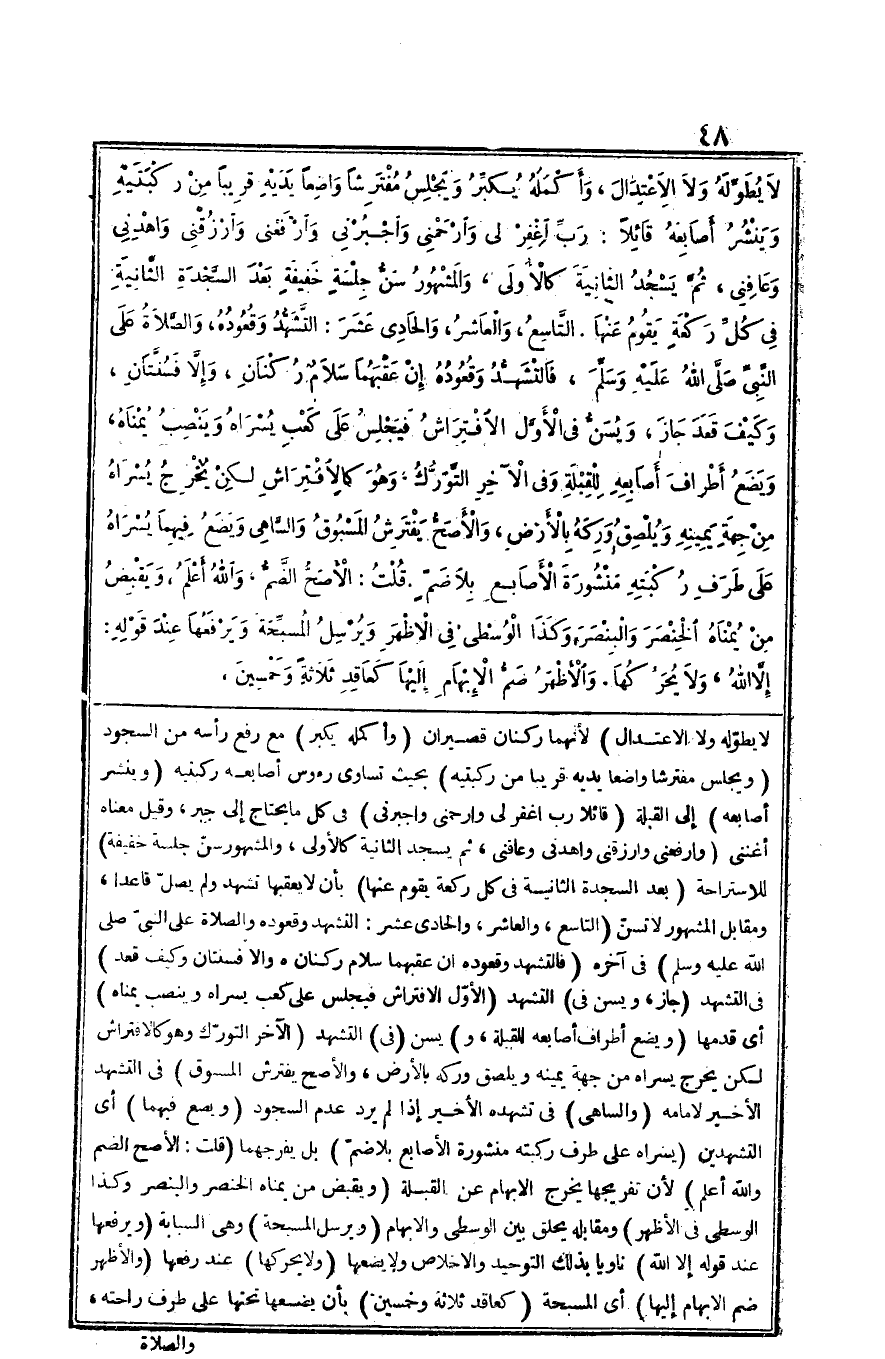 ٤٨
لاَ يُطَوِّلَهُ وَلاَ الِاعْتِدَالَ، وَأَكْمَلُهُ يُكَبِّرُ وَيَجْلِسُ مُفْتَرِشاً وَاضِعاً يَدَيْهِ قَرِيباً مِنْ رُكْبَتَيْهِ
وَيَنْشُرُ أَصَابِعَهُ قَائِلاً : رَبِّ اغْفِرْ لِى وَارْحَمْنِى وَاجْبُرْنِى وَارْفَعْنِى وَارْزُقْنِى وَاهْدِنِى
وَعَافِنِى، ثُمَّ يَسْجُدُ الثَّانِيَةَ كَالْأُولَى، وَالْمَشْهُورُ سَنُّ جِلْسَةٍ خَفِيفَةٍ بَعْدَ السَّجْدَةِ الثَّانِيَةِ
فِى كُلِّ رَكْعَةٍ يَقُومُ عَنْهَا. التَّاسِعُ، وَالْعَاشِرُ، وَالْحَادِى عَشَرَ : التَّشَهُّدُ وَقُعُودُهُ، وَالصَّلاَةُ عَلَى
النَّبِىِّ صَلَّى اللهُ عَلَيْهِ وَسَلَّمَ ، فَالتَّشَهُّدُ وَقُعُودُهُ إِنْ عَقَبَهُمَا سَلاَمٌ رُكْنَانِ ، وَإِلَّا فَسُنَّتَانِ ،
وَكَيْفَ قَعَدَ جَازَ ، وَيُسَنُّ فِى الْأَوَّلِ الِافْتِرَاشُ فَيَجْلِسُ عَلَى كَعْبِ يُسْرَاهُ وَيَنْصِبُ يُمْنَاهُ،
وَيَضَعُ أَطْرَافَ أَصَابِعِهِ لِلْقِبْلَةِ وَفِى الْآخِرِ التَّوَرُّكُ، وَهُوَ كَالِافْتِرَاشِ لكِنْ يُخْرِجُ يُسْرَاهُ
مِنْ جِهَةِ يَمِينِهِ وَيُلْصِقُ وَرِكَهُ بِالْأَرْضِ، وَالْأَصَحُّ يَفْتَرِشُ الْمَسْبُوقُ وَالسَّاهِى وَيَضَعُ فِيهِمَا يُسْرَاهُ
عَلَى طَرَفِ رُكْبَتِهِ مَنْشُورَةَ الْأَصَابِعِ بِلاَ ضَمٍّ. قُلْتُ : الْأَصَحُّ الضَّمُّ، وَاللهُ أَعْلَمُ، وَيَقْبِضُ
مِنْ يُمْنَاهُ الْخِنْصَرَ وَالْبِنْصَرَ، وَكَذَا الْوُسْطَى فِى الْأَظْهَرِ وَيُرْسِلُ الْمُسَبِّحَةَ وَيَرْفَعُهَا عِنْدَ قَوْلِهِ :
إِلَّا اللهُ، وَلاَ يُحَرِّكُهَا. وَالْأَظْهَرُ ضَمُّ الْإِبْهَامِ إِلَيْهَا كَعَاقِدِ ثَلاَثَةٍ وَخَمْسِينَ ،
لايطوّله ولا الاعتدال ) لأنهما ركنان قصيران ( وأكمله يكبر ) مع رفع رأسه من السجود
( ويجلس مفترشا واضعا يديه قريبا من ركبتيه ) بحيث تساوى رءوس أصابعه ركبتيه ( وينشر
أصابعه ) إلى القبلة ( قائلا رب اغفر لى وارحمنى واجبرنى ) فى كل مايحتاج إلى جبر ، وقيل معناه
أغننى ( وارفعنى وارزقنى واهدنى وعافنى ، ثم يسجد الثانية كالأولى ، والمشهور سنّ جلسة خفيفة)
للاستراحة ( بعد السجدة الثانية فى كل ركعة يقوم عنها) بأن لايعقبها تشهد ولم يصلّ قاعدا ،
ومقابل المشهور لاتسنّ (التاسع ، والعاشر ، والحادى عشر : التشهد وقعوده والصلاة على النبىّ صلى
الله عليه وسلم ) فى آخره ( فالتشهد وقعوده ان عقبهما سلام ركنان ه والا فسنتان وكيف قعد )
فى التشهد ( جاز ، ويسن فى ) التشهد (الأوّل الافتراش فيجلس على كعب يسراه وينصب يمناه )
أى قدمها ( ويضع أطراف أصابعه للقبلة ، و) يسن (فى) التشهد ( الآخر التورّك وهو كالافتراش
لكن يخرج يسراه من جهة يمينه ويلصق وركه بالأرض ، والأصح يفترش المسبوق ) فى التشهد
الأخير لامامه ( والساهى ) فى تشهده الأخير إذا لم يرد عدم السجود ( ويضع فيهما ) أى
التشهدين ( يسراه على طرف ركبته منشورة الأصابع بلاضمّ ) بل يفرجهما (قلت : الأصح الضم
والله أعلم ) لأن تفريجها يخرج الابهام عن القبلة ( ويقبض من يمناه الخنصر والبنصر وكذا
الوسطى فى الأظهر ) ومقابله يحلق بين الوسطى والابهام ( ويرسل المسبحة ) وهى السبابة (ويرفعها
عند قوله إلا الله ) ناويا بذلك التوحيد والاخلاص ولايضعها ( ولايحركها ) عند رفعها (والأظهر
ضم الابهام إليها) أى المسبحة ( كعاقد ثلاثة وخمسين ) بأن يضعها تحتها على طرف راحته ،
والصلاة